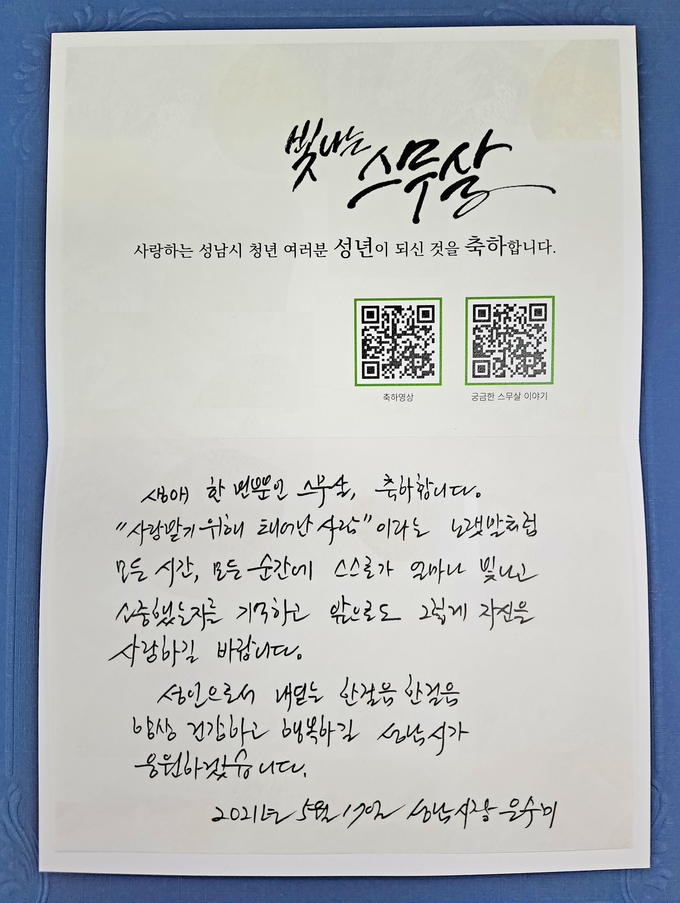 빛나는 스무살
사랑하는 성남시 청년 여러분 성년이 되신 것을 축하합니다.
축하영상
궁금한 스무살 이야기
생애 한 번뿐인 스무살, 축하합니다.
"사랑받기 위해 태어난 사람"이라는 노랫말처럼
모든 시간, 모든 순간에 스스로가 얼마나 빛나고
소중했는지를 기억하고 앞으로도 그렇게 자신을
사랑하길 바랍니다.
성인으로서 내딛는 한걸음 한걸음
항상 건강하고 행복하길 성남시가
응원하겠습니다.
2021년 5월 17일 성남시장 은수미